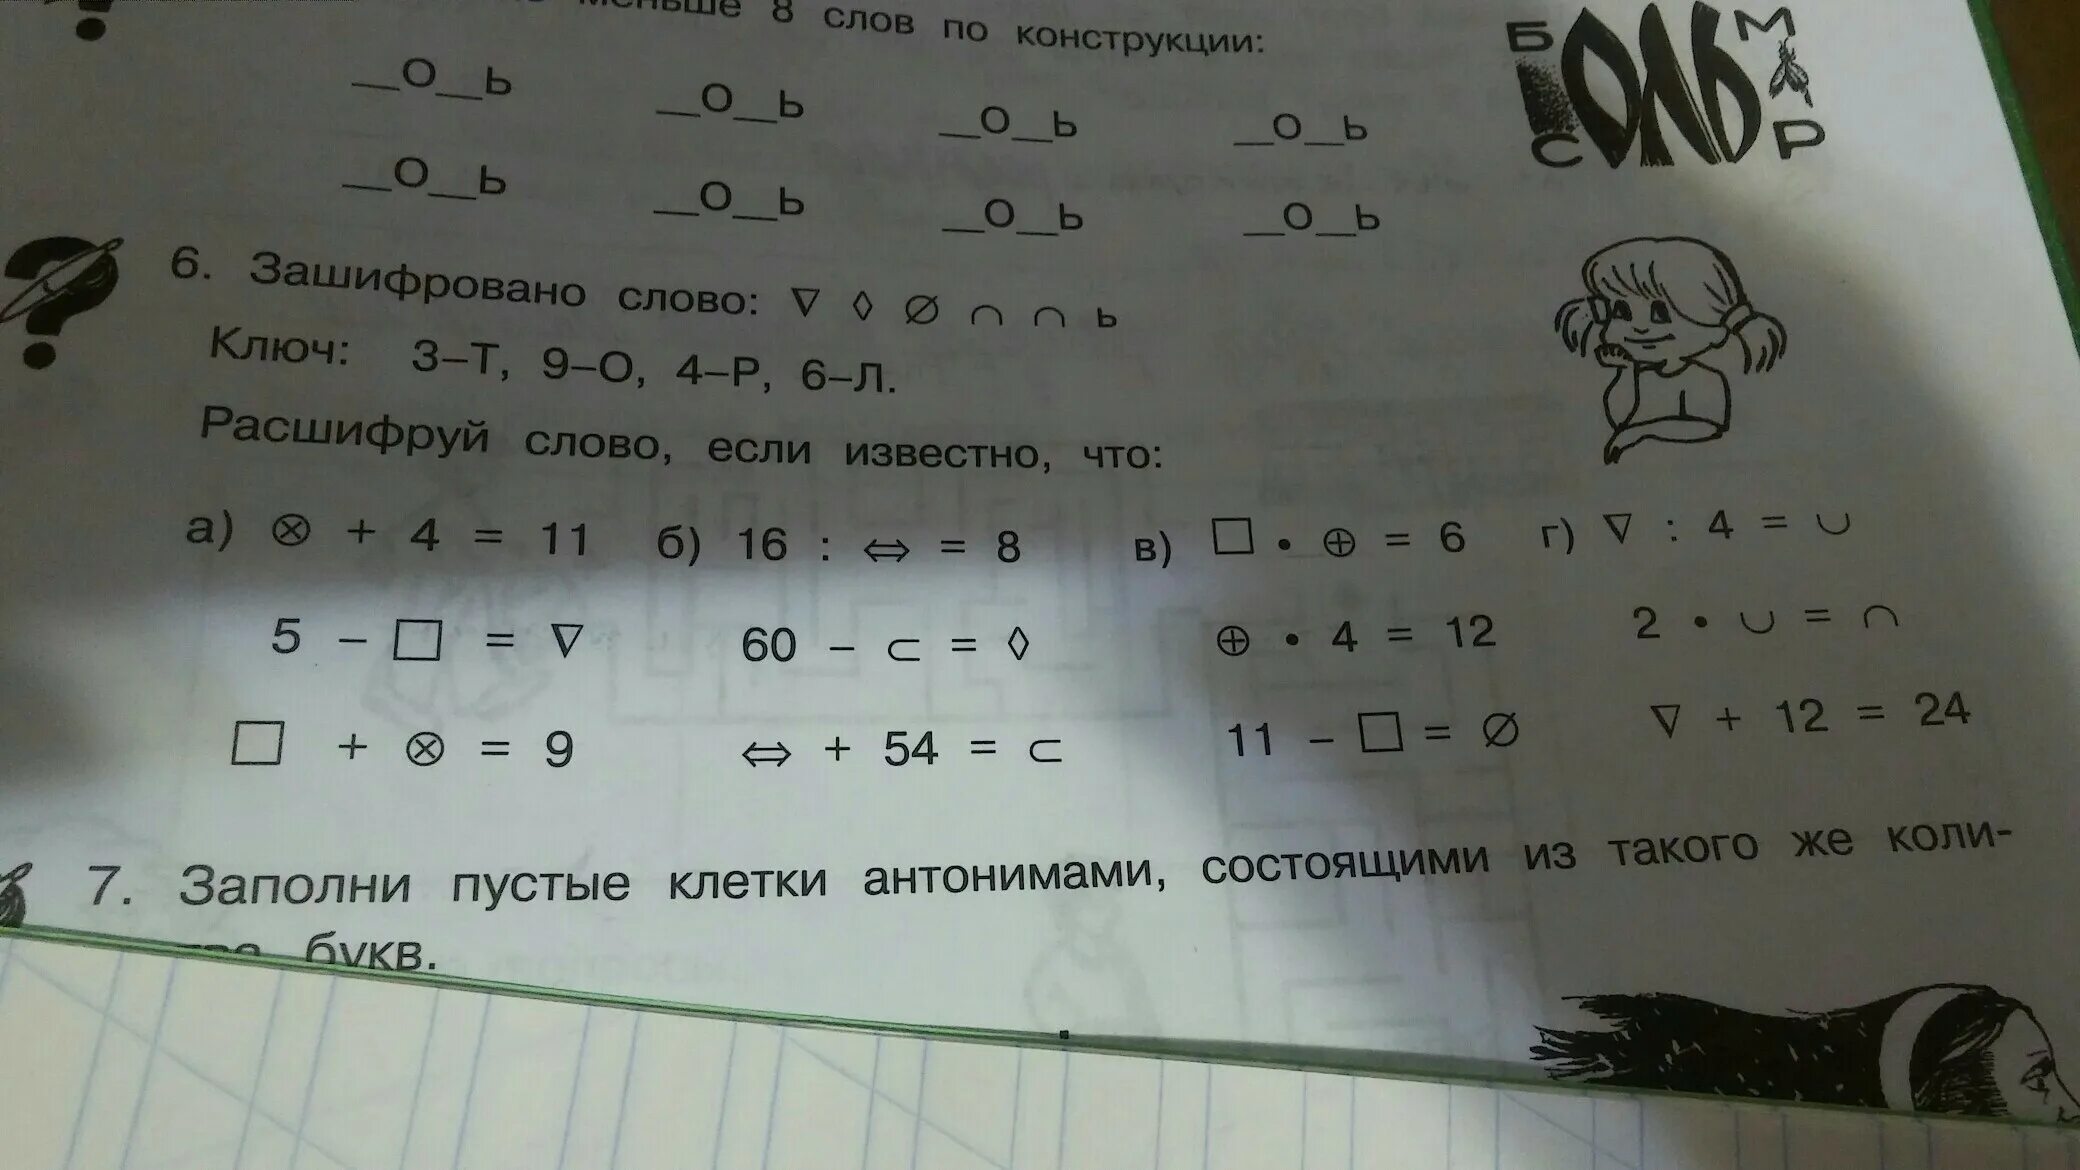 меньше 8 слов по конструкции:
__О__Ь __О__Ь __О__Ь __О__Ь
__О__Ь __О__Ь __О__Ь __О__Ь
Б ОЛЬ М
С Р
6. Зашифровано слово: ∇ ◊ ∅ ∩ ∩ ь
Ключ: 3–Т, 9–О, 4–Р, 6–Л.
Расшифруй слово, если известно, что:
а) ⊗ + 4 = 11 б) 16 : ⇔ = 8 в) □ • ⊕ = 6 г) ∇ : 4 = ∪
5 – □ = ∇ 60 – ⊂ = ◊ ⊕ • 4 = 12 2 • ∪ = ∩
□ + ⊗ = 9 ⇔ + 54 = ⊂ 11 – □ = ∅ ∇ + 12 = 24
7. Заполни пустые клетки антонимами, состоящими из такого же коли-
букв.